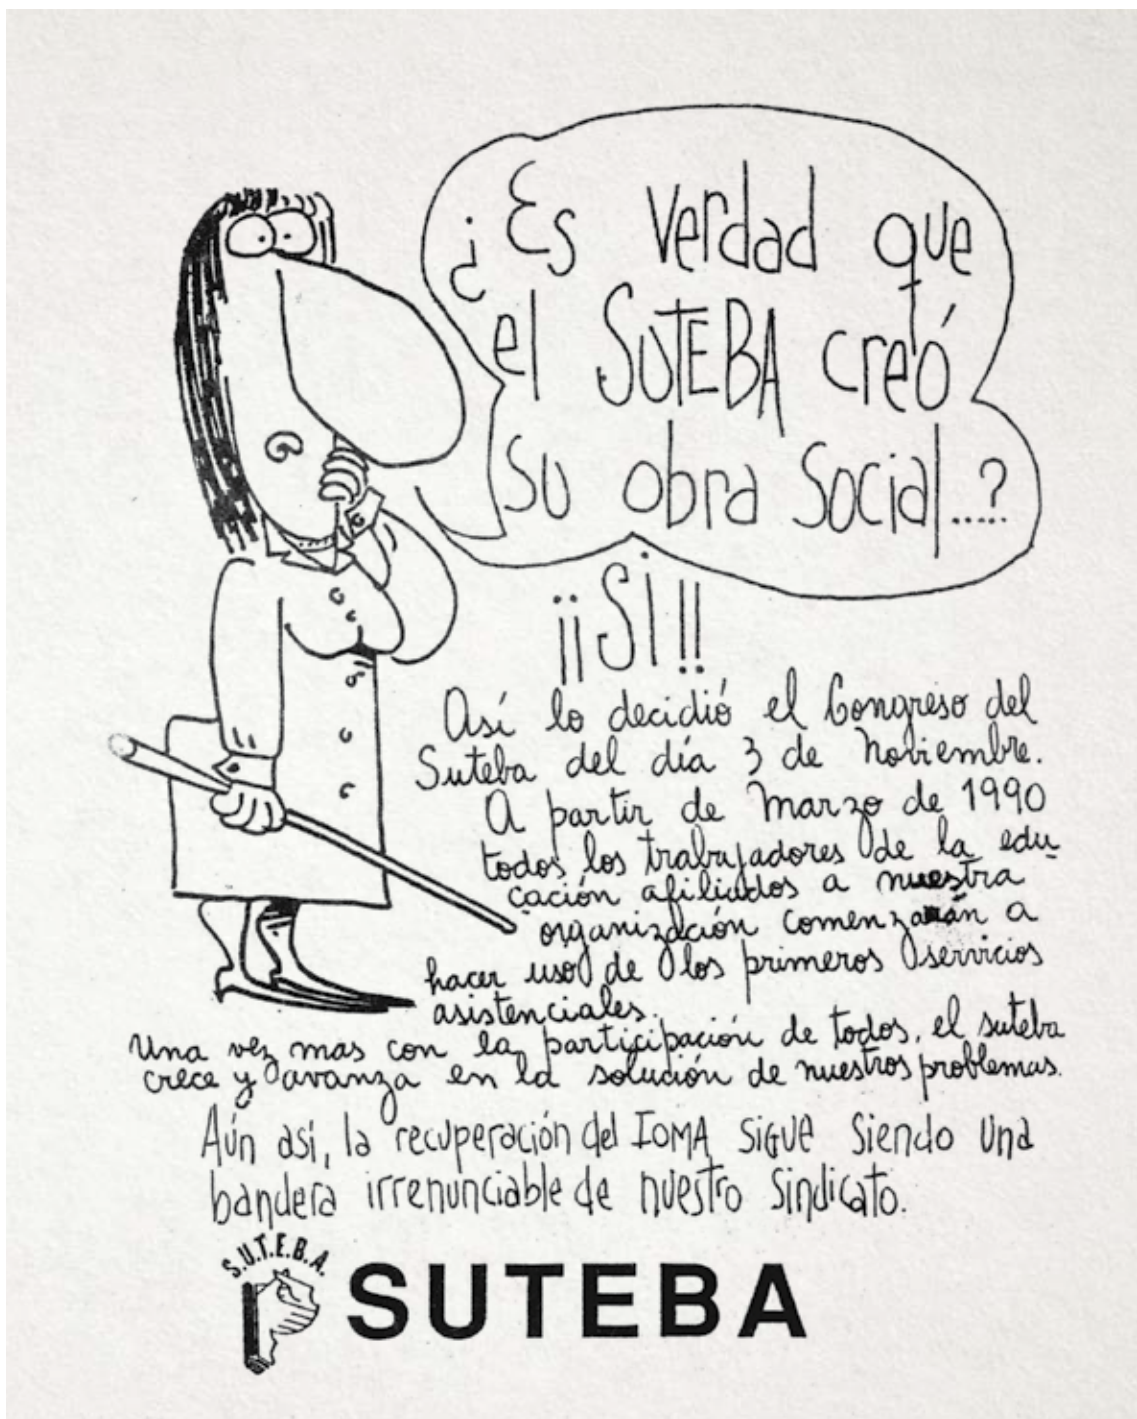 ¿Es verdad que
el SUTEBA creó
su obra social.....?
¡¡SI!!
Así lo decidió el Congreso del
Suteba del día 3 de Noviembre.
A partir de Marzo de 1990
todos los trabajadores de la edu-
cación afiliados a nuestra
organización comenzarán a
hacer uso de los primeros servicios
asistenciales.
Una vez mas con la participación de todos, el suteba
crece y avanza en la solución de nuestros problemas.
Aún así, la recuperación del IOMA sigue siendo una
bandera irrenunciable de nuestro sindicato.
S.U.T.E.B.A.
SUTEBA